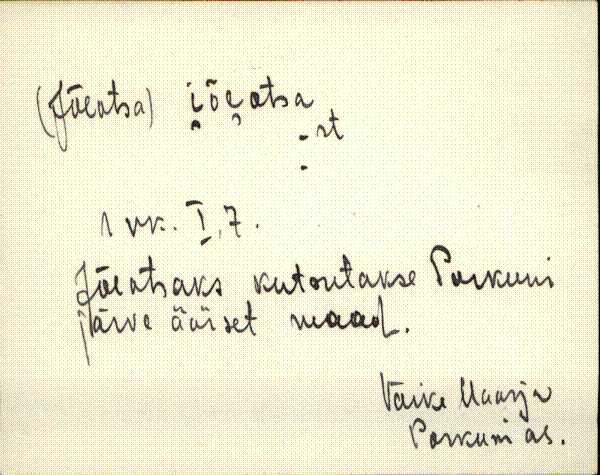 (Jõeotsa) i̮õe̮otsa
-st
-
1 vk. I, 7.
Jõeotsaks kutsutakse Porkuni
järve äärset maad.
Väike Maarja
Porkuni as.